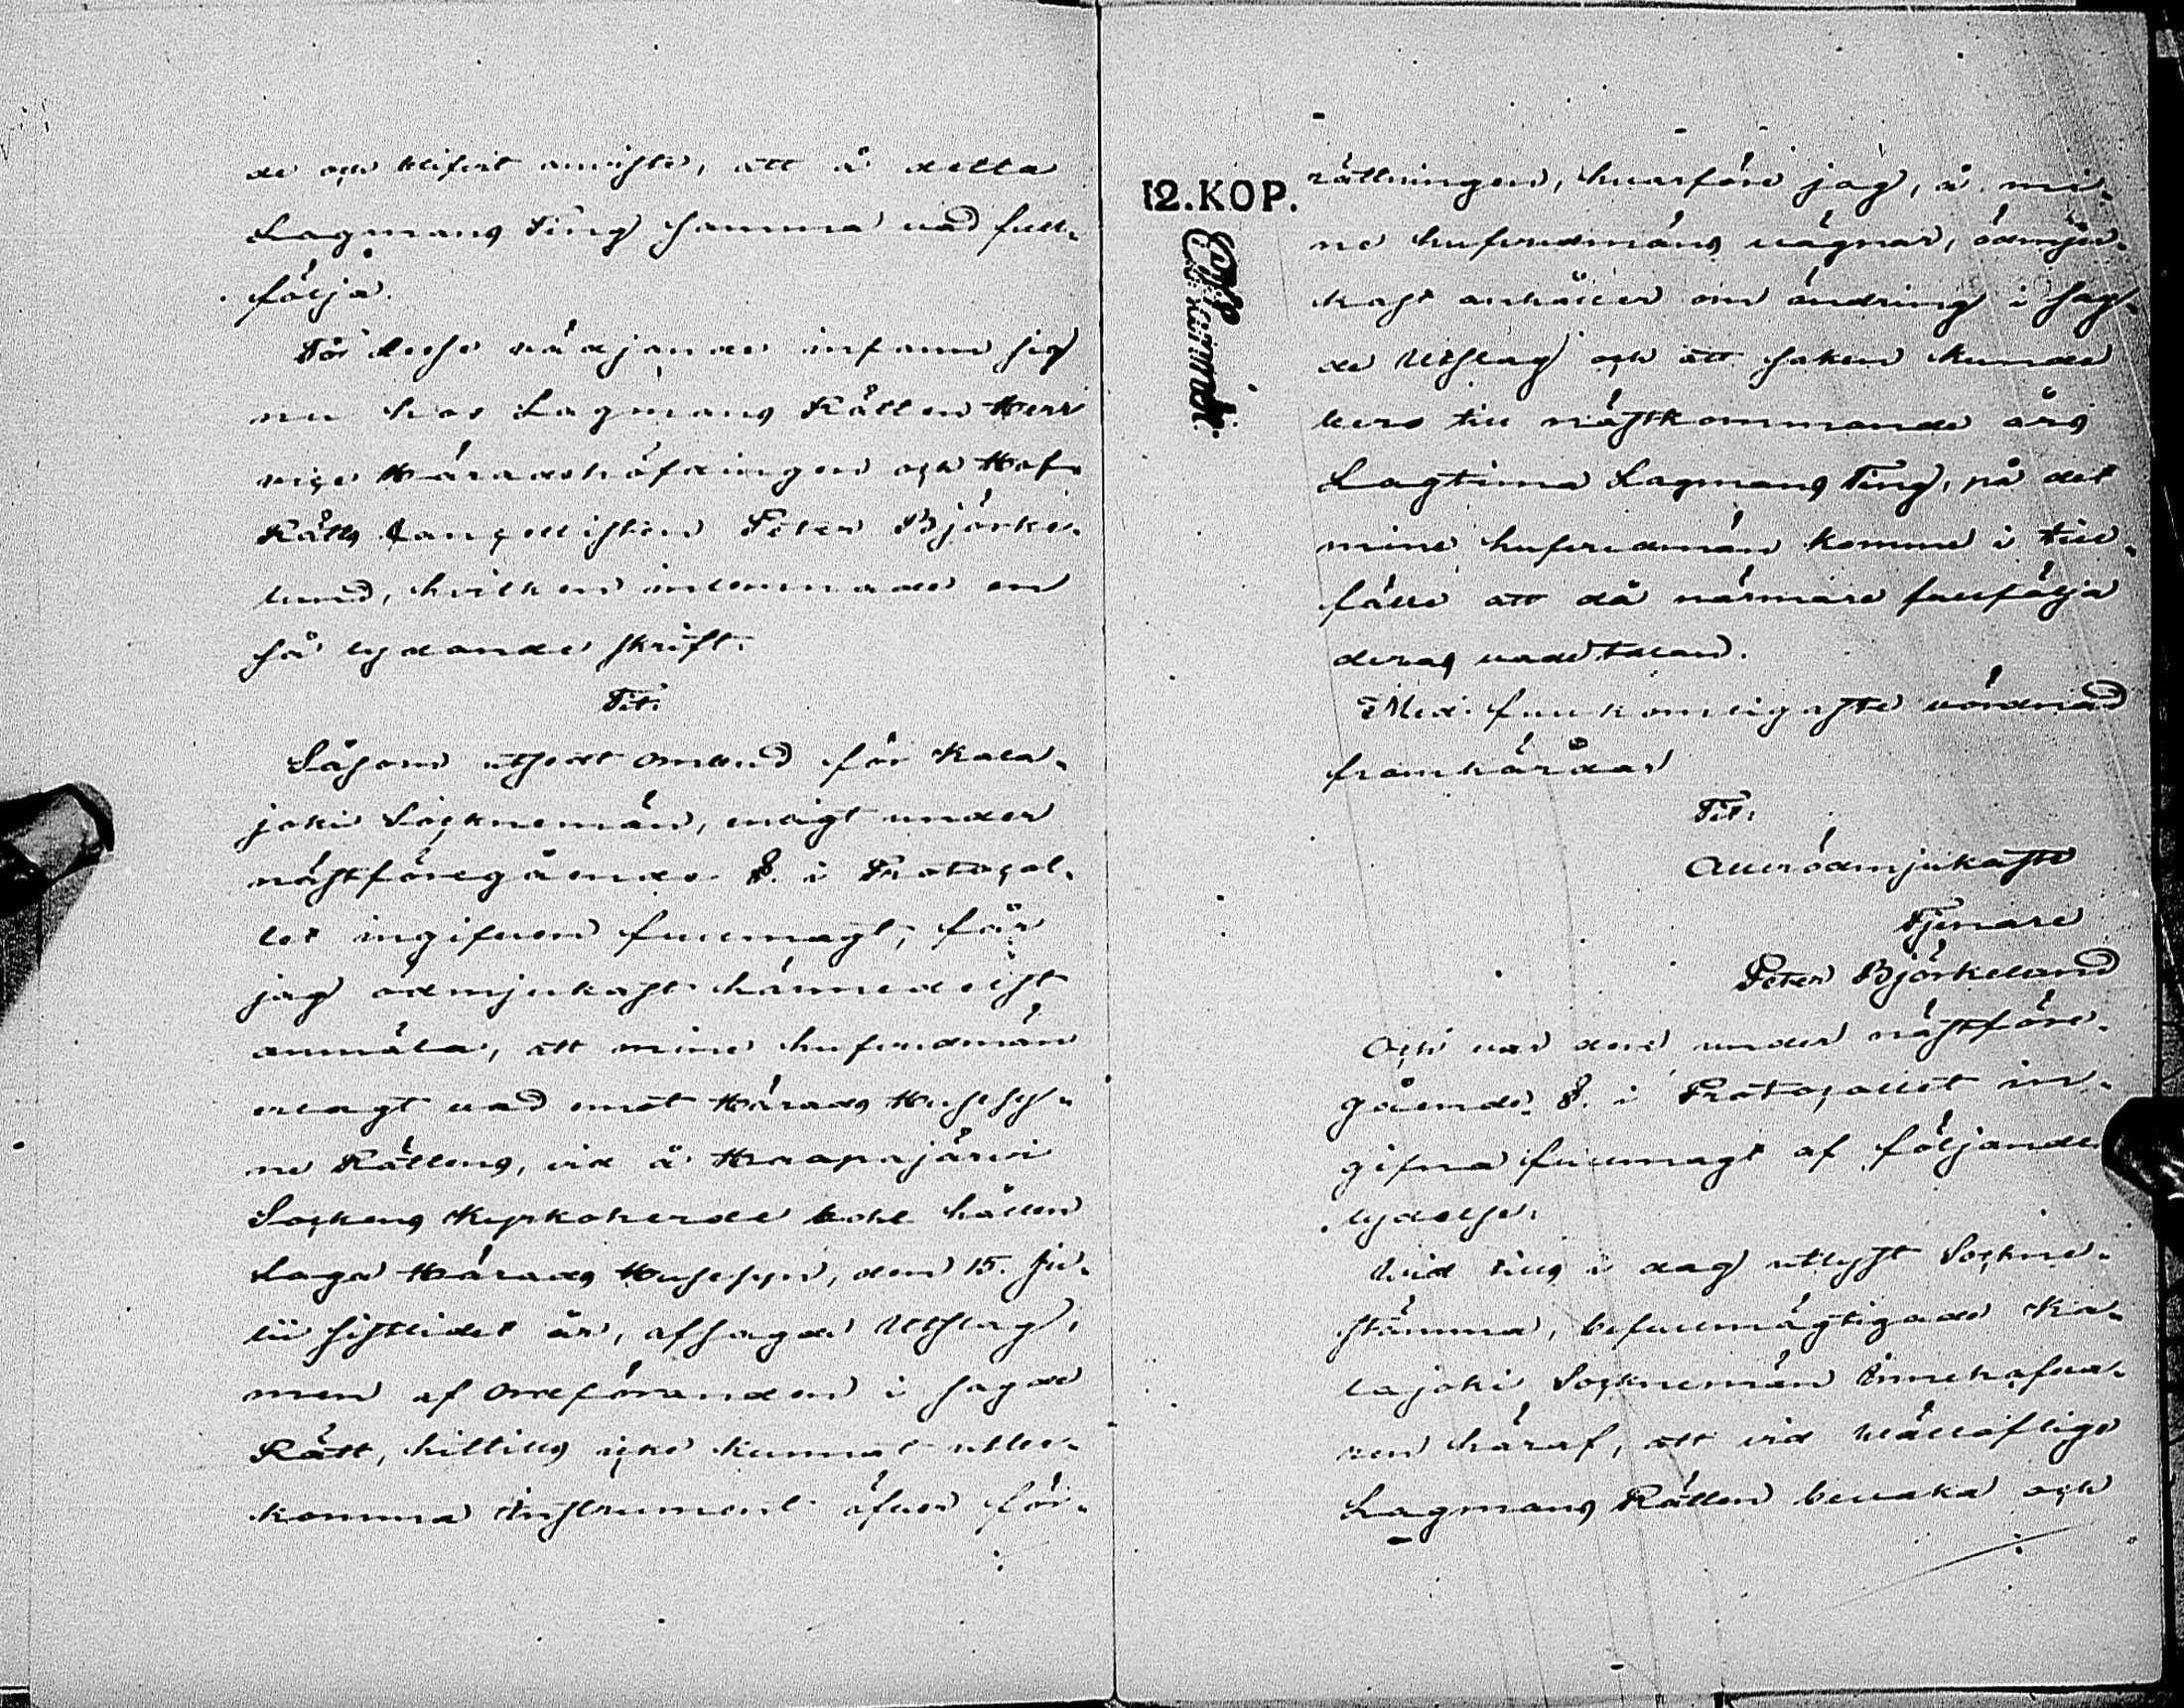 de och blifvit anviste, att å detta
Lagmans Ting samma vad full-
följa.
För desse vädjande infann sig
nu hos Lagmans Rätten Herr
vice Häradshöfdingen och Hof
Rätts Cancellisten Peter Björke-
lund, hvilken inlemnade en
så lydande skrift.
Tit:
Såsom utsedt ombud för Kala-
joki Sockнемän, enligt under
nästföregående §. i Protocol-
let ingifven fullmagt, får
jag ödmjukast härmedelst
anmäla, att mine hufvudmän
erlagt vad emot Härads Husesy-
ne Rättens, vid å Haapajärvi
Sockens Kyrkoherde bohl hållen
Laga Härads Husesyn, den 15. Ju-
lii sistlidet år, afsagde Utslag,
men af Ordföranden i sagde
Rätt, hittills icke kunnat utbe-
komma Instrument öfver för-
12. KOP.
rättningen, hvarföre jag, å mi-
ne hufvudmäns vägnar, ödmju-
kast anhåller om ändring i sag-
de Utslag och att saken kunde
bero till nästkommande års
Lagtima Lagmans Ting, på det
mine hufvudmän komme i till-
fälle att då närmare fullfölja
deras vadetalan.
Med fullkomligaste vördnad
framhärdar
Tit:
Allerödmjukaste
Tjenare
Peter Björkelund
Och var den under nästföre-
gående §. i Protocollet in-
gifna fullmagt af följande
lydelse:
Wid tills i dag utlyst Sockne-
stämma, befullmägtigade Ka-
lajoki Socknemän Innehafva-
ren häraf, att vid Wällofliga
Lagmans Rätten bevaka och